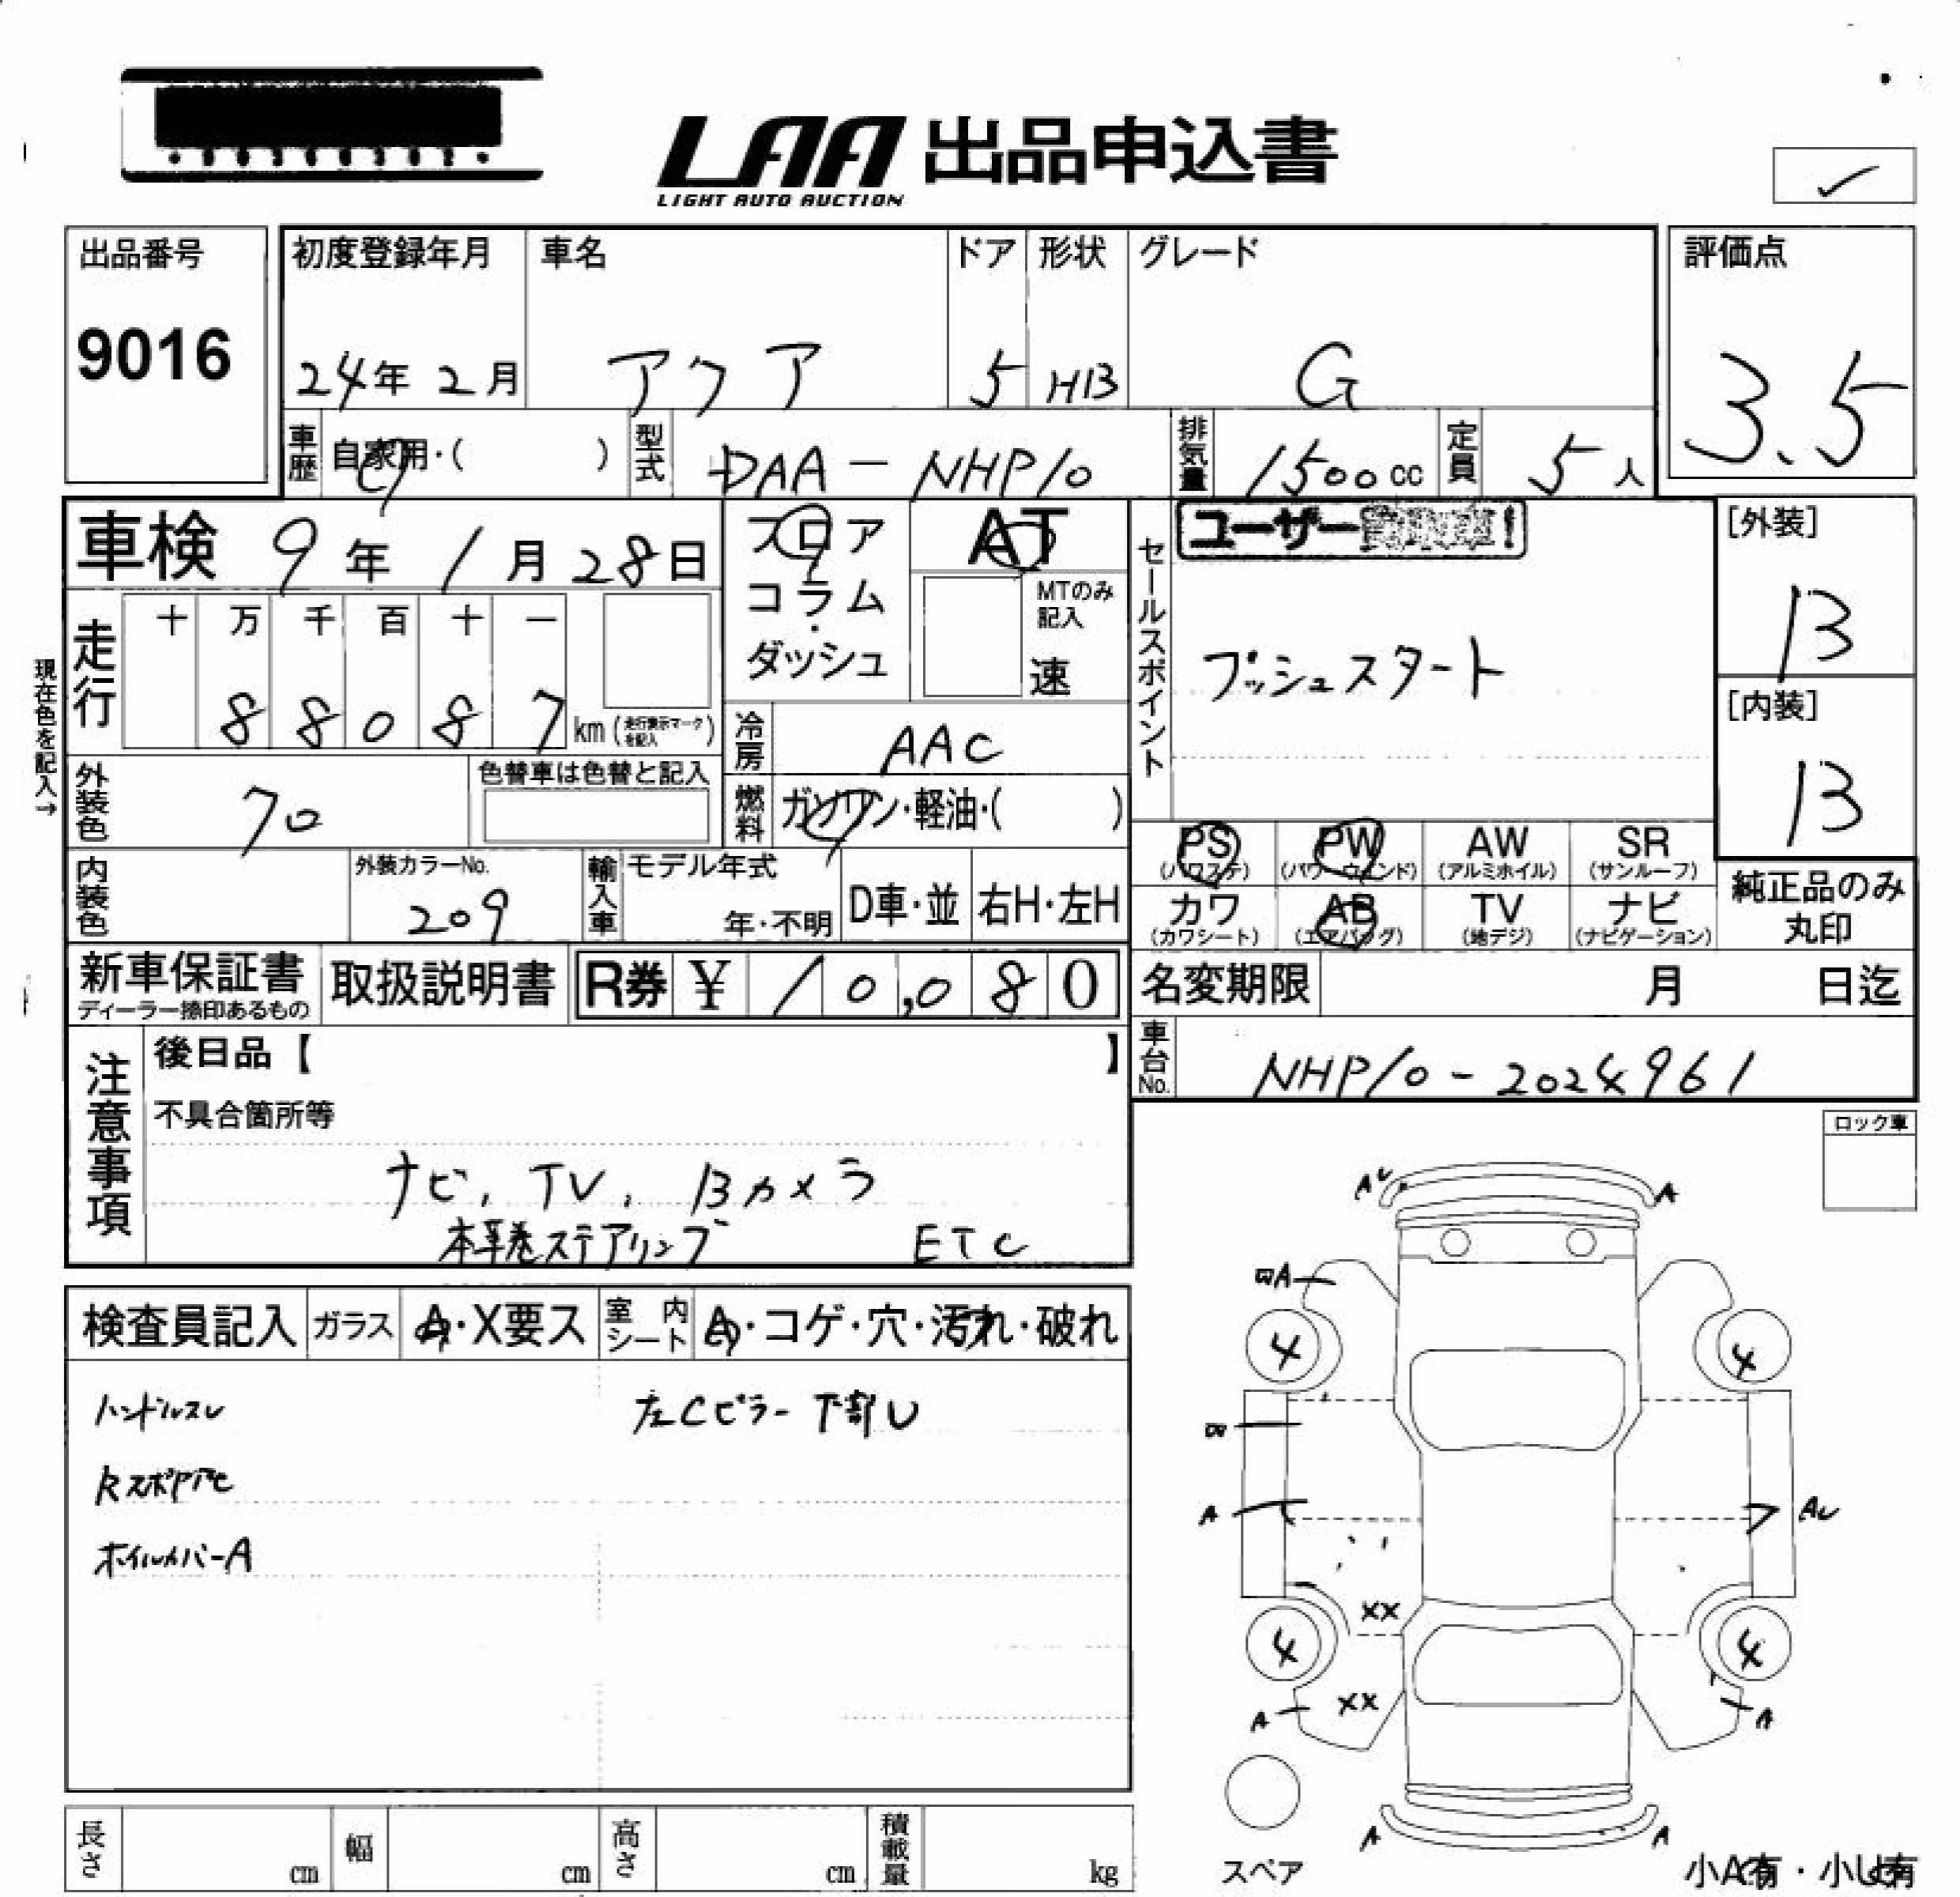 LAA 出品申込書
LIGHT AUTO AUCTION
出品番号
9016
初度登録年月
24年 2月
車名
アクア
ドア
5
形状
HB
グレード
G
評価点
3.5
車歴 自家用・( )
型式 DAA-NHP10
排気量 1500cc
定員 5人
車検 9年 1月 28日
フロア
コラム
ダッシュ
AT
MTのみ記入
速
セールスポイント
ユーザー
プッシュスタート
[外装]
B
[内装]
B
現在色を記入→
走行
十 万 千 百 十 一
8 8 0 8 7 km (走行表示マークを記入)
冷房 AAC
外装色 70
色替車は色替と記入
燃料 ガソリン・軽油・( )
内装色
外装カラーNo.
209
輸入車
モデル年式
年・不明
D車・並
右H・左H
PS (パワステ)
PW (パワーウィンド)
AW (アルミホイル)
SR (サンルーフ)
カワ (カワシート)
AB (エアバッグ)
TV (地デジ)
ナビ (ナビゲーション)
純正品のみ丸印
新車保証書
ディーラー捺印あるもの
取扱説明書
R券 ¥ 10,080
名変期限 月 日迄
車台No. NHP10-2024961
注意事項
後日品【 】
不具合箇所等
ナビ, TV, Bカメラ
本革巻ステアリング ETC
ロック車
検査員記入
ガラス A・X要ス
室内シート A・コゲ・穴・汚れ・破れ
ハンドルスレ 左Cピラー下部U
ホイルカバーA
AU A
A
4 4
A AU
XX
4 4
A XX A
A A
スペア
長さ cm
幅 cm
高さ cm
積載量 kg
小A有・小U有